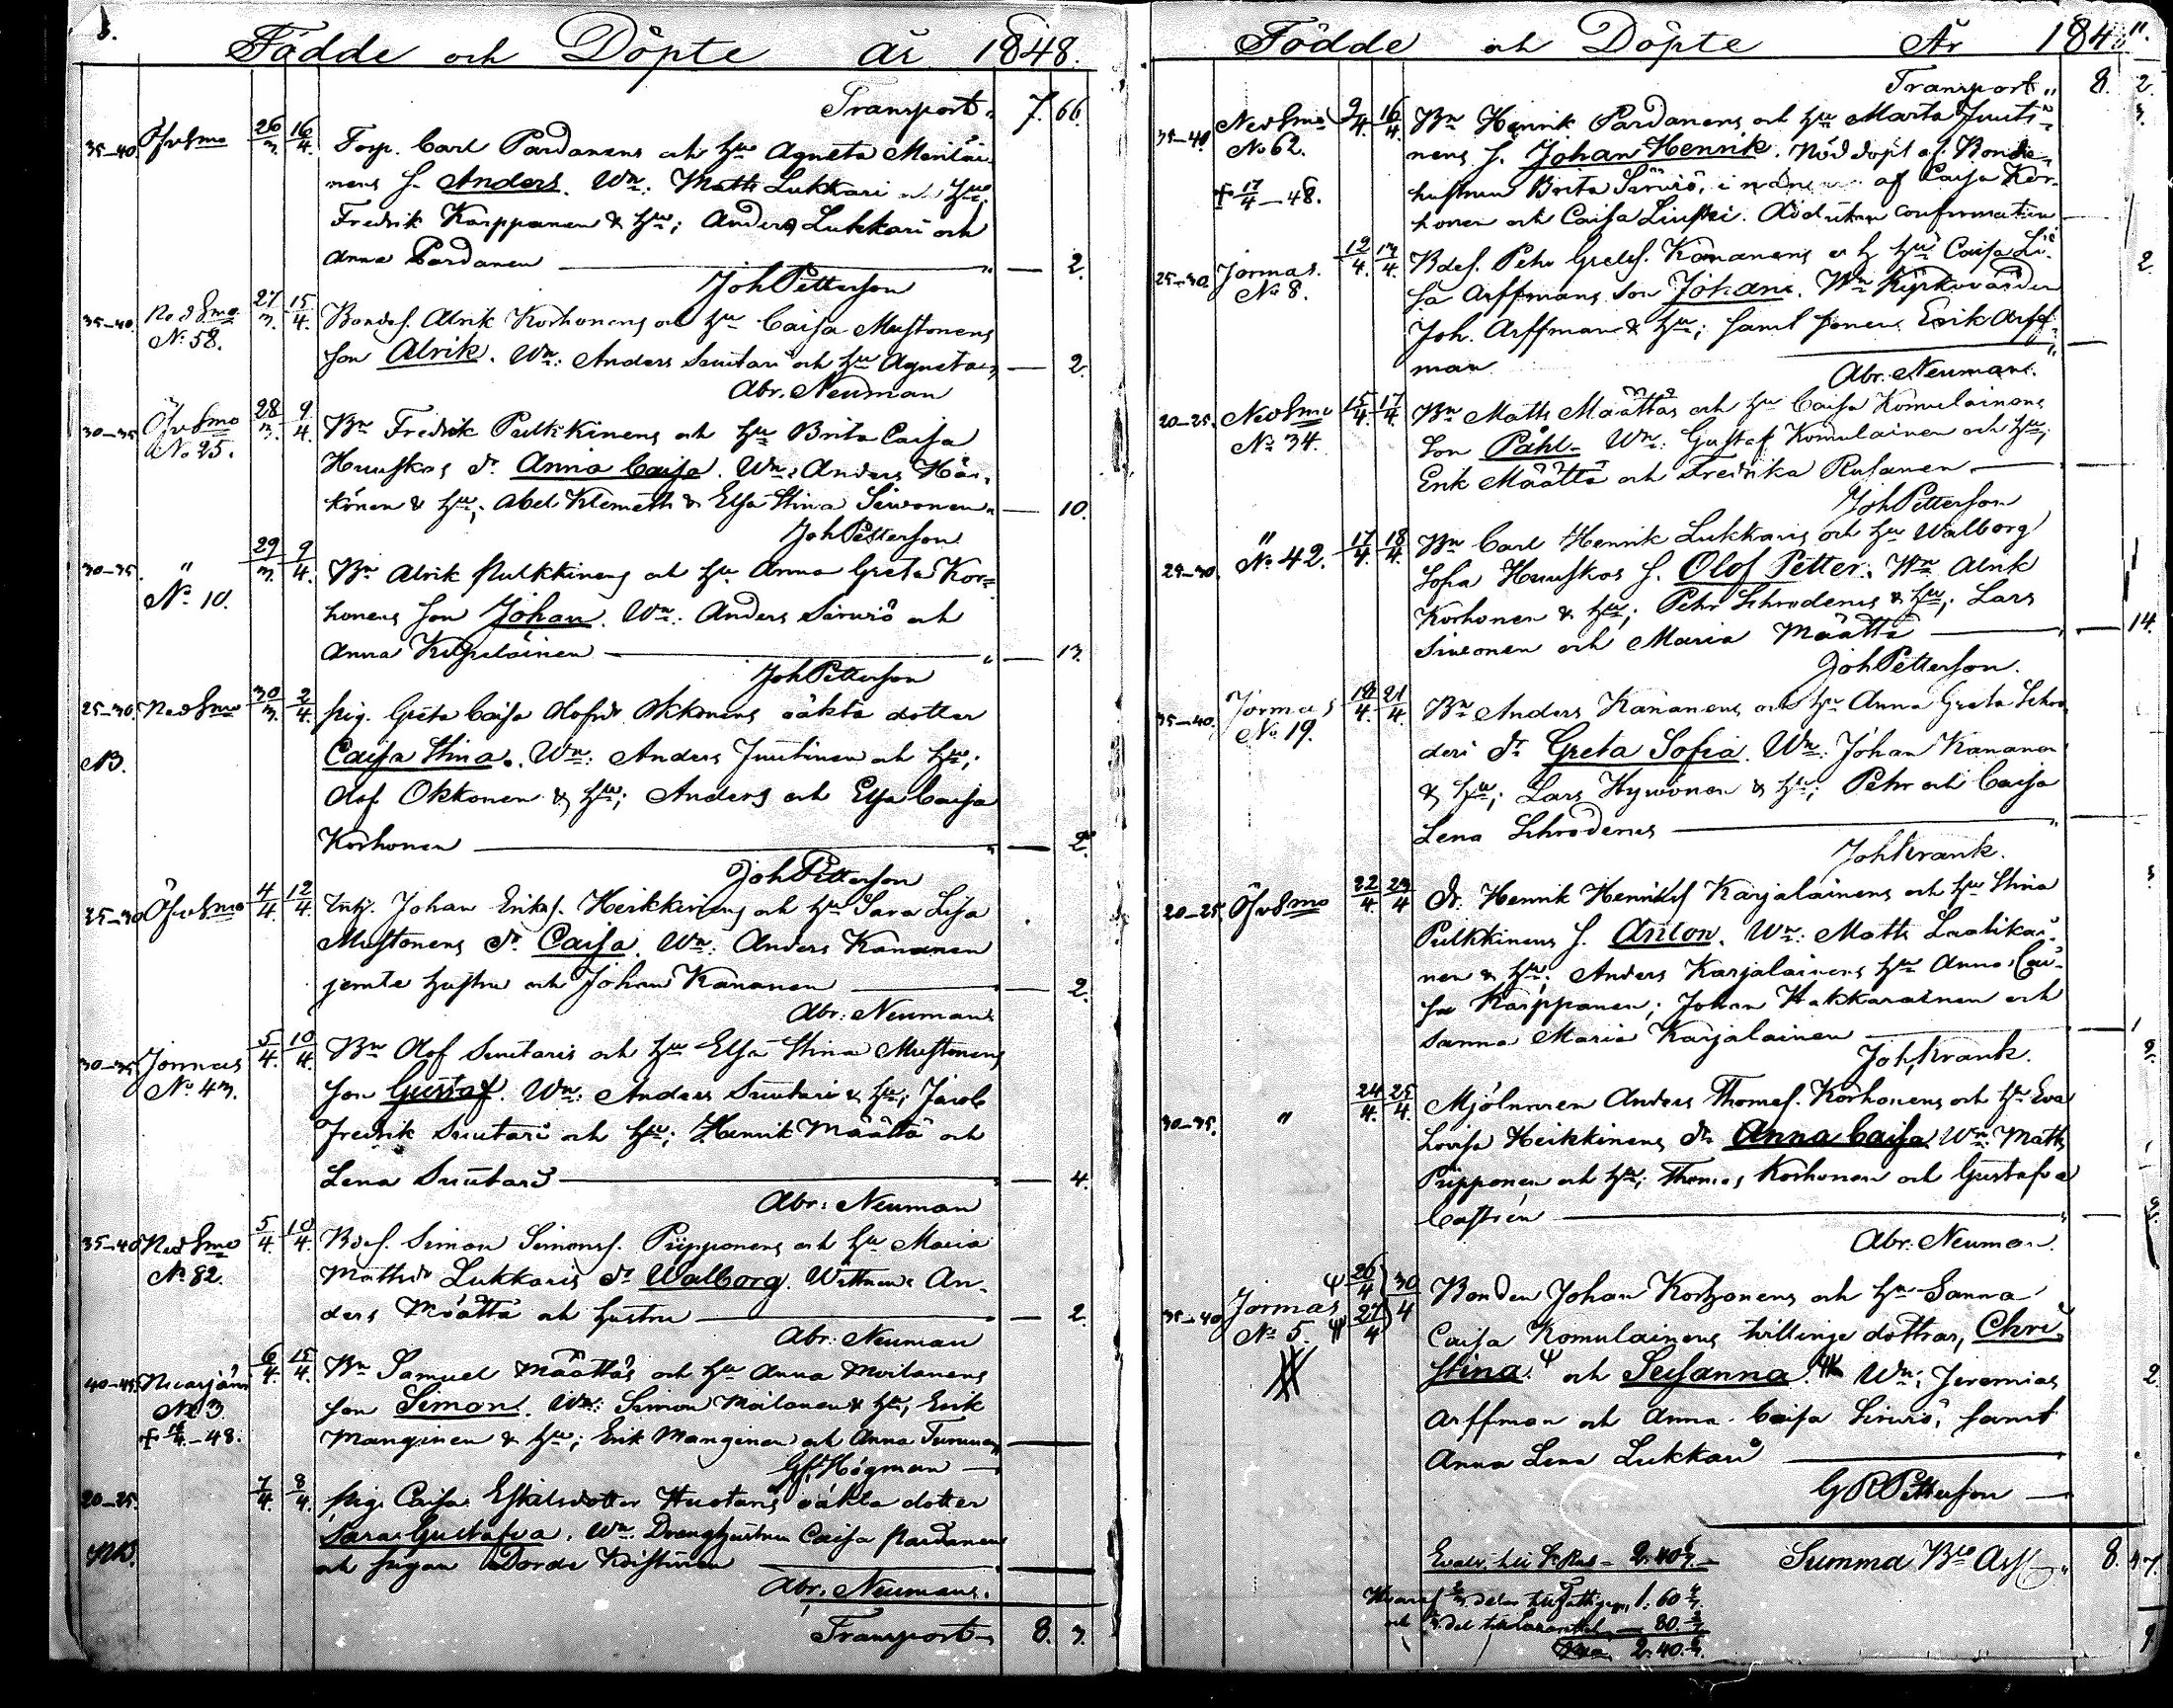 Födde och Döpte år 1848.
Transport 7. 66.
35-40. ÖfvSmo 26/3. 16/4. Torp. Carl Pardanens och hu Agneta Meriläi-
nens s. Anders. Wn: Matts Lukkari hu;
Fredrik Karppanen & hu; Anders Lukkari och
Anna Pardanen 2.
Joh Petterson
35-40. NedSmo 27/3. 15/4. Bondes. Alrik Korhonens och hu Caisa Mustonens
No 58. son Alrik. Wn: Anders Suutari och hu Agneta 2.
Abr. Neuman
30-35 ÖfvSmo 28/3. 9/4. Bn Fredrik Pulkkinens och hu Brita Caisa
No 25. Huuskos dr Anna Caisa. Wn: Anders Här-
könen & hu; Abel Klemetti & Elsa Stina Siwonen 10.
Joh Petterson
30-35. " 29/3. 9/4. Bn Alrik Pulkkinens och hu Anna Greta Kor-
No 10. honens son Johan. Wn: Anders Sirwiö och
Anna Kurgeläinen 13.
Joh Petterson
25-30. NedSmo 30/3. 2/4. pig. Greta Caisa Olofsdr Okkonens oäkta dotter
NB. Caisa Stina. Wn: Anders Juutinen och hu;
Olof Okkonen & hu; Anders och Elsa Caisa
Korhonen 2.
Joh Petterson
25-30 ÖfvSmo 4/4. 12/4. Inh. Johan Eriks. Heikkinens och hu Sara Lisa
Mustonens dr Caisa. Wn: Anders Kananen
jemte hustru och Johan Kananen 2.
Abr: Neuman
30-35 Jormas 5/4. 10/4. Bn Olof Suutaris och hu Elsa Stina Mustonens
No 43. son Gustaf. Wn: Anders Suutari & hu; Jacob
Fredrik Suutari och hu; Henrik Määttä och
Lena Suutari 4.
Abr: Neuman
35-40 NedSmo 5/4. 10/4. Bdes. Simon Simonss. Piipponens och hu Maria
No 82. Mattsdr Lukkaris dr Walborg. Wittnen: An-
ders Määttä och hustru 2.
Abr: Neuman
40-45. 6/4. 15/4. Bn Samuel Määttäs och hu Anna Moilanens
No 3. son Simon. Wn: Simon Moilanen & hu; Erik
-48. Manginen & hu; Erik Manginen och Anna
Högman
20-25. 7/4. 8/4. pig. Caisa Eskilsdotter Huotaris oäkta dotter
Sara Gustafva. Wn: Drenghustrun Caisa Pardanen
NB. och pigan Dordi Koistinen
Abr. Neuman.
Transport 8. 3.
Födde och Döpte År 184 11.
Transport 8. 2.
35-40. NedSmo 9/4. 16/4. Bn Henrik Pardanens och hu Marta Juuti-
No 62. nens s. Johan Henrik. Nöddöpt af Bonde-
+ 17/4 -48. hustrun Brita Sirwiö, i af Caisa Kor-
honen och Caisa Liuski. Död utan confirmation
25-30 Jormas. 12/4. 13/4. Bdes. Petr Grelss. Kananens och hu Caisa Li-
No 8. sa Arffmans son Johan. Wn Kyrkovärden
Joh. Arffman & hu; samt Erik Arff-
man
Abr. Neuman.
20-25. NedSmo 15/4. 17/4. Bn Matts Määttäs och hu Caisa Komulainens
No 34. Son Påhl. Wn: Gustaf Komulainen och hu;
Erik Määttä och Fredrika Rusanen
Joh Petterson
25-30. " No 42. 17/4. 18/4. Bn Carl Henrik Lukkaris och hu Walborg
Sofia Huuskos s. Olof Petter. Wn Alrik
Korhonen & hu; Petr Schroderus & hu; Lars
Siwonen och Maria Määttä 14.
Joh Petterson.
35-40. Jormas 18/4. 21/4. Bn Anders Kananens och hu Anna Greta Schro-
No 19. deri dr Greta Sofia. Wn: Johan Kananen
& hu; Lars Hywönen & hu; Petr och Caisa
Lena Schroderus
Joh Krank.
20-25 ÖfvSmo 22/4. 23/4 Dr. Henrik Henriks Karjalainens och hu Stina
Pulkkinens s. Anton. Wn: Matts Laatikai-
nen & hu; Anders Karjalainens hu Anna Cai-
sa Karppanen; Johan Hakkarainen och
Sanna Maria Karjalainen
Joh Krank.
30-35. " 24/4. 25/4. Mjölnaren Anders Thomas. Korhonens och hu Eva
Lovisa Heikkinens dr Anna Caisa Wn: Matts
Piipponen och hu; Thomas Korhonen och Gustafva
Castrén
Abr. Neuman.
35-40 Jormas 26/4 27/4 30/4 Bonden Johan Korhonens och hu Sanna
No 5. Caisa Komulainens tvillinge döttrar, Chri-
stina och Susanna. Wn: Jeremias 2.
Arffman och Anna Caisa Sirwiö, samt
Anna Lena Lukkari
G R Petterson
2.40 Summa 8. 47.
1.60
80.
2.40.